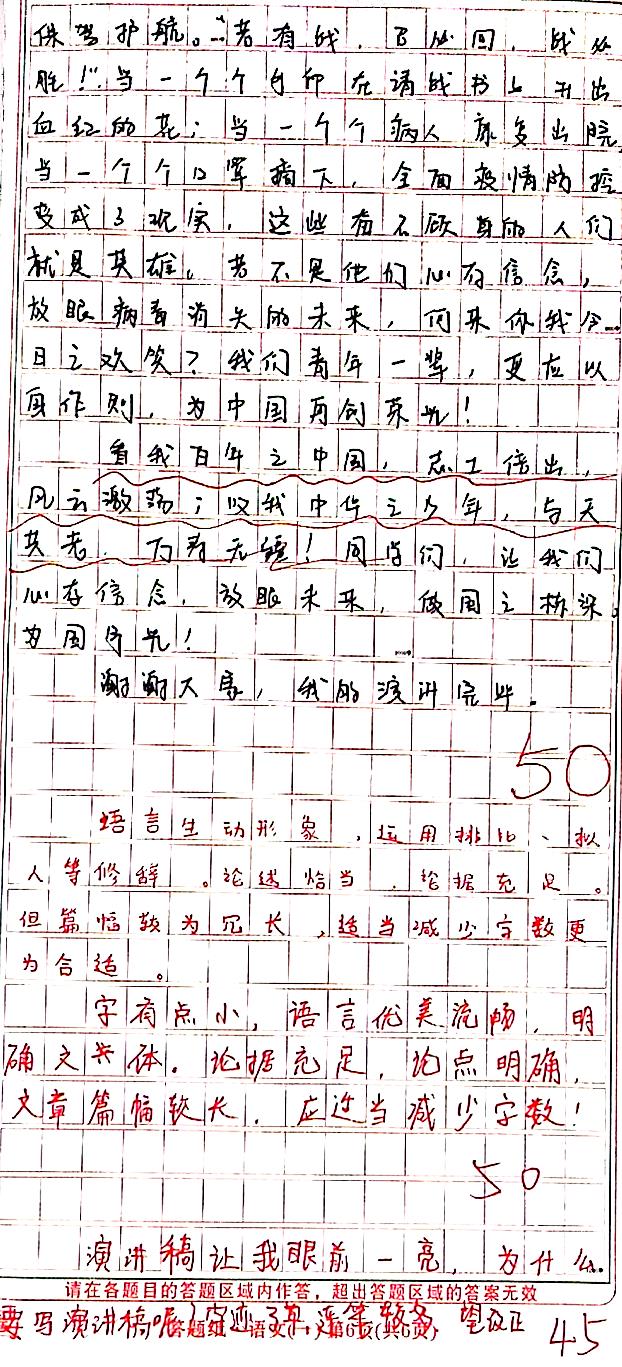 保驾护航。“若有战，召必回，战必
胜！”当一个个手印在请战书上开出
血红的花；当一个个病人康复出院，
当一个个口罩摘下，全面疫情防控
变成了现实，这些奋不顾身的人们
就是英雄。若不是他们心存信念，
放眼病毒消失的未来，何来你我今
日之欢笑？我们青年一辈，更应以
身作则，为中国再创荣光！
看我百年之中国，志士倍出，
风云激荡；叹我中华之少年，与天
共老，万寿无疆！同学们，让我们
心存信念，放眼未来，做国之栋梁，
为国争光！
谢谢大家，我的演讲完毕。
50
语言生动形象，运用排比、拟
人等修辞。论述恰当，论据充足。
但篇幅较为冗长，适当减少字数更
为合适。
字有点小，语言优美流畅，明
确文共体。论据充足，论点明确，
文章篇幅较长，应适当减少字数！
50
演讲稿让我眼前一亮，为什么
请在各题目的答题区域内作答，超出答题区域的答案无效
要写演讲稿呢！字迹 较多 望改正
语文 第6页(共6页)
45